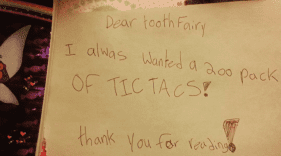 Dear tooth Fairy
I alwas wanted a 200 pack
OF TIC TACS!
thank you for reading!